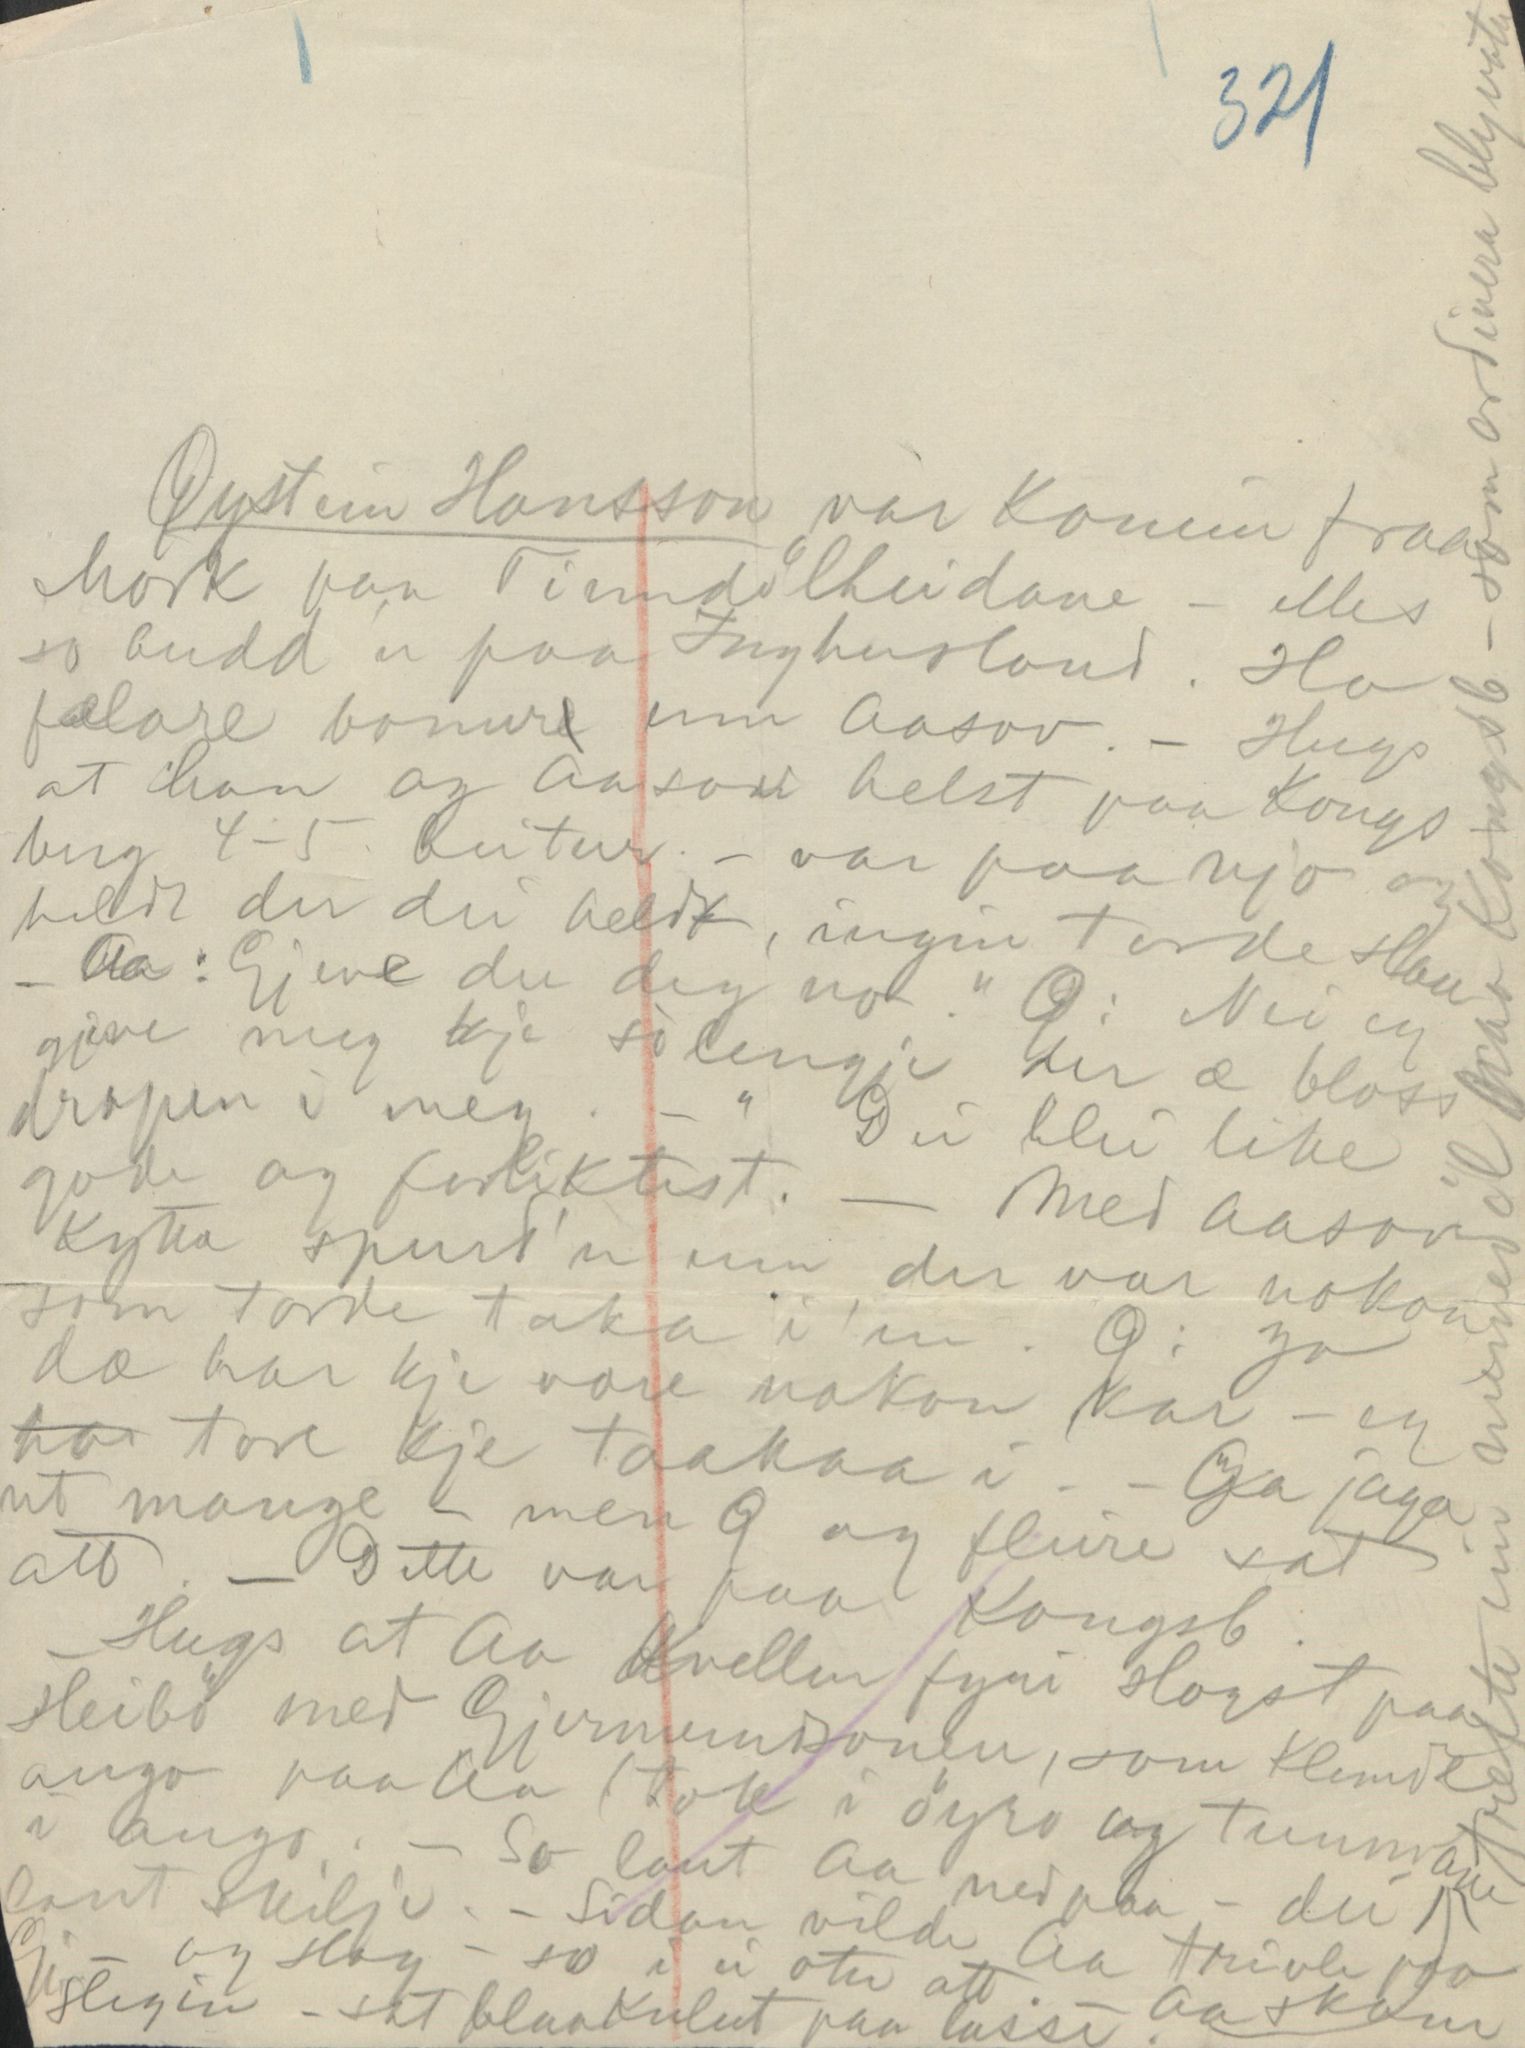 321
Øystein Hansson var komin fraa
Mork paa Tinndølheidane - elles
so budd'n paa Inghusland. Ha
fælare vonure um Aasov. - Hugs
at han og Aasov helst paa Kongs
berg 4-5 beitur. - var paa njo og
heldt der dei heldt, ingin torde slaa
- Aa: Gjeve du deg no." Ø: Nei eg
gjeve meg kje so lengje der æ bloss
dropen i meg. -" Dei blei like
gode og forliktest. - Med Aasov
Kytta spurd'n um der var nokon
som torde taka i'n. Ø: Ja
dæ har kje vore nokon kar - eg
tore kje taakaa i. - Aa jaga
ut mange - men Ø og fleire sat
att. - Dette var paa Kongsb.
- Hugs at Aa Kvellur fyri slogst paa
Heibø med Gjermundsonen, som klemde
augo paa Aa (tok i øyro og tummane
i augo. - So laut Aa ned paa - dei
laut skilje. - Sidan vilde Aa trivle paa
Gj - og slog - so i'n otu att. Aa skam
slegin - sat blaaknlut paa lassi.
drefte in meirved øl paa Kongsb - som ordinera blyvatn